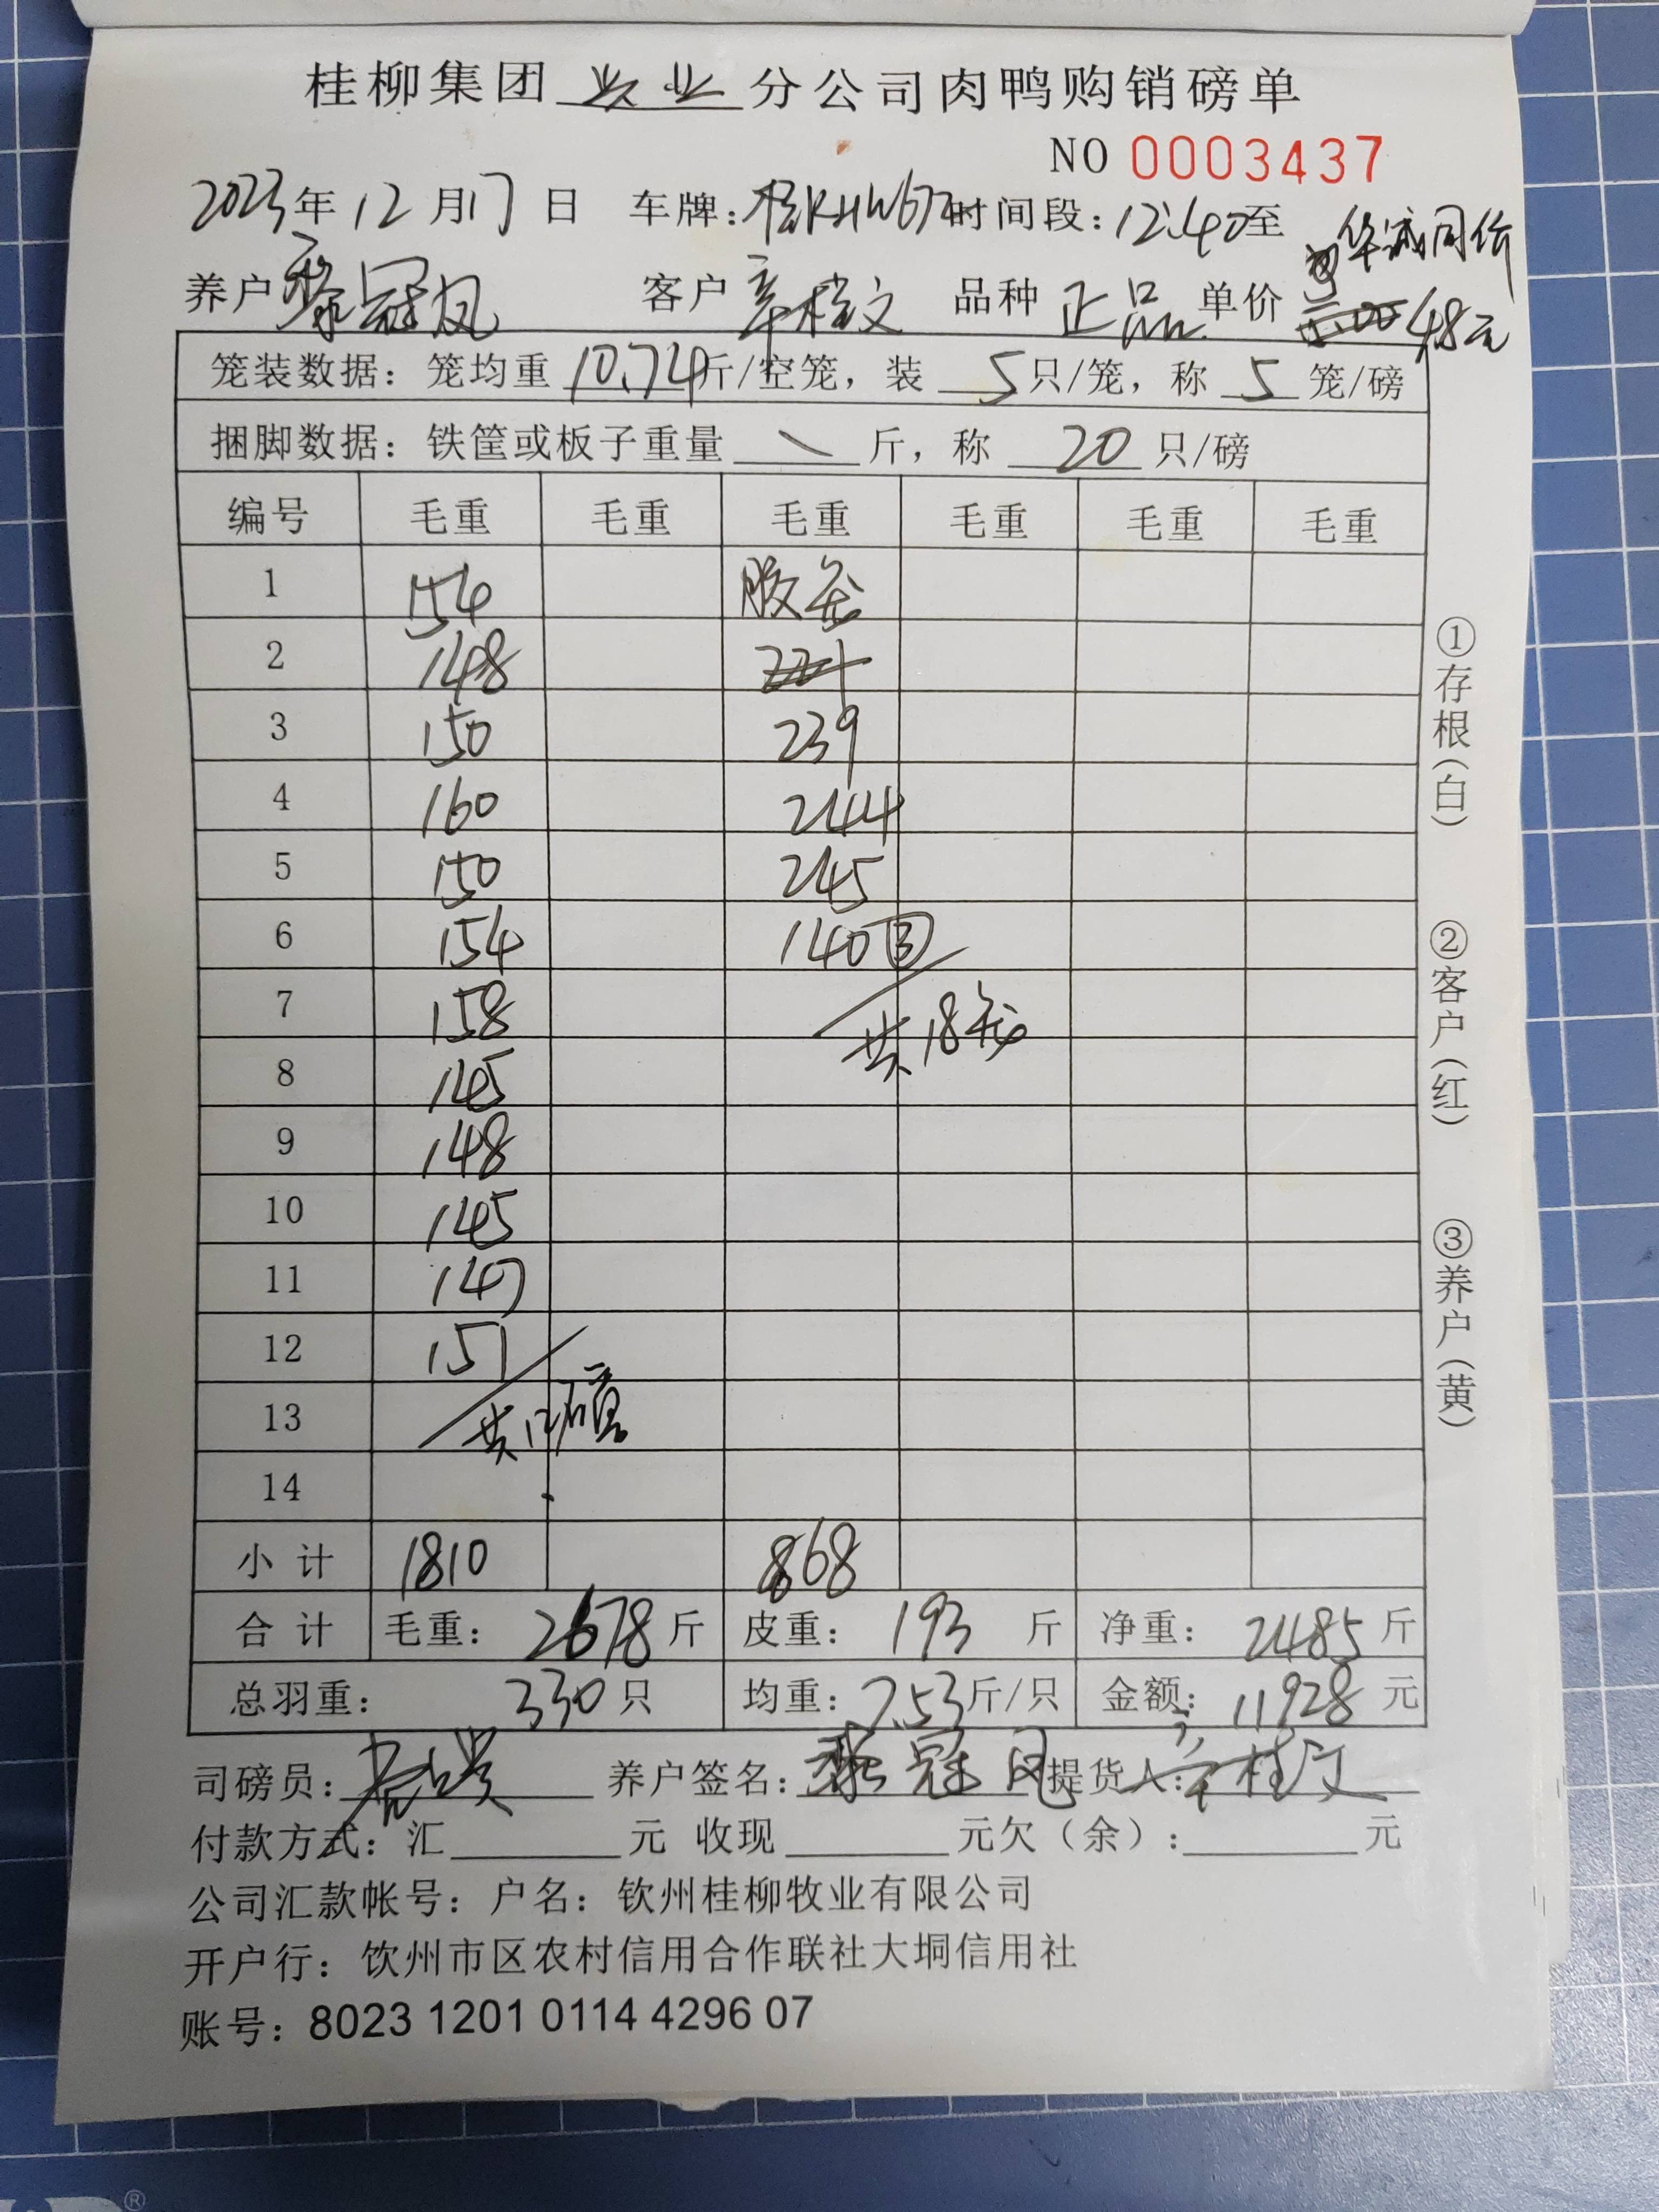 桂柳集团 兴业 分公司肉鸭购销磅单
NO 0003437
2023年 12 月 17 日 车牌：桂KHW672 时间段：12:40 至
与华诚同价
养户 冠凤 客户 辛桂文 品种 正品 单价 4.8元
笼装数据：笼均重 10.74 斤/空笼，装 5 只/笼，称 5 笼/磅
捆脚数据：铁筐或板子重量 斤，称 20 只/磅
编号 毛重 毛重 毛重 毛重 毛重 毛重
1 154 胶笼
2 148 221
3 150 239
4 160 244
5 150 245
6 154 140③
7 158 共18笼
8 145
9 148
10 145
11 147
12 151
13 共12磅
14
小 计 1810 868
合 计 毛重：2678 斤 皮重：193 斤 净重：2485 斤
总羽重：330 只 均重：7.53 斤/只 金额：11928 元
司磅员： 养户签名： 冠凤 提货人：辛桂文
付款方式：汇 元 收现 元欠（余）： 元
公司汇款帐号：户名：钦州桂柳牧业有限公司
开户行：钦州市区农村信用合作联社大垌信用社
账号：8023 1201 0114 4296 07
①存根（白）
②客户（红）
③养户（黄）